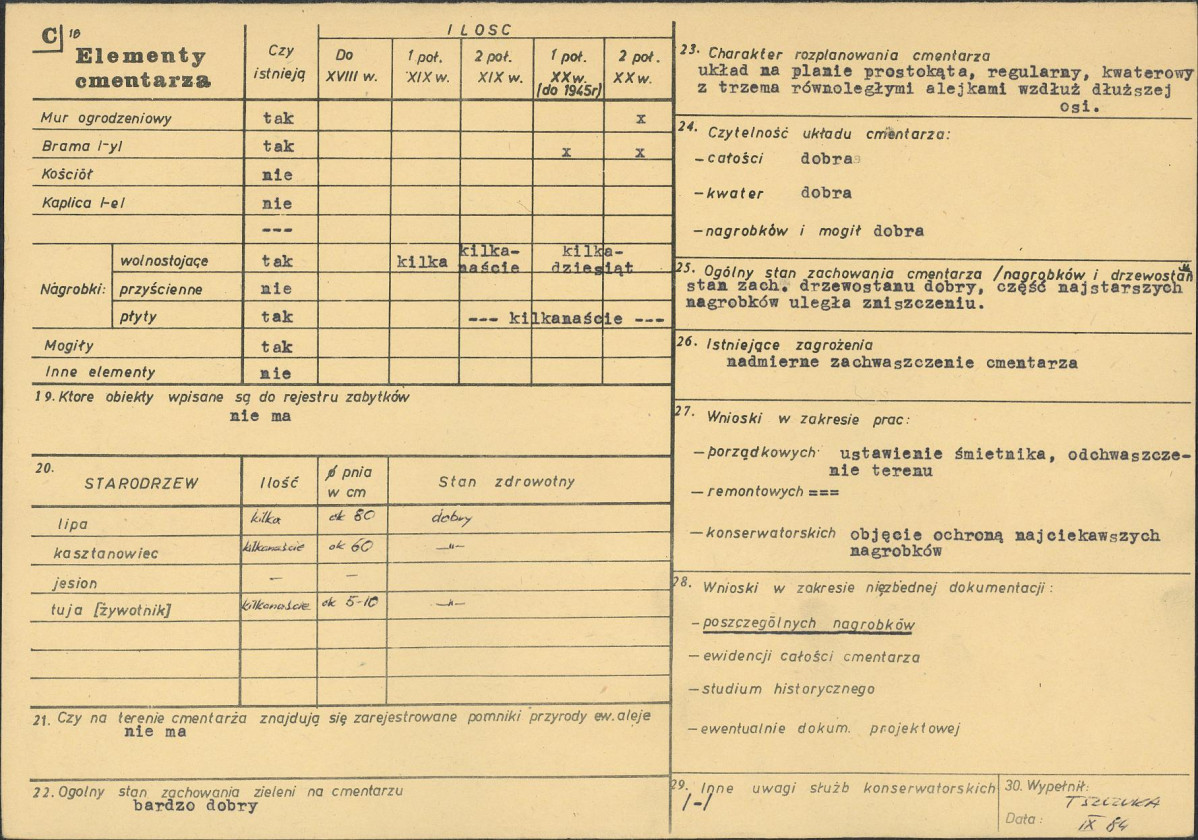 C 18
Elementy cmentarza
Czy istnieją
ILOSC
Do XVIII w.
1 poł. XIX w.
2 poł. XIX w.
1 poł. XX w. (do 1945r)
2 poł. XX w.
Mur ogrodzeniowy tak x
Brama l-yl tak x x
Kościół nie
Kaplica l-el nie
---
Nagrobki:
wolnostojące tak kilka kilka-naście kilka-dziesiąt
przyścienne nie
płyty tak --- kilkanaście ---
Mogiły tak
Inne elementy nie
19. Ktore obiekty wpisane są do rejestru zabytków
nie ma
20.
STARODRZEW Ilość φ pnia w cm Stan zdrowotny
lipa kilka ok 80 dobry
kasztanowiec kilkanaście ok 60 -"-
jesion — —
tuja [żywotnik] kilkanaście ok 5-10 -"-
21. Czy na terenie cmentarża znajdują się zarejestrowane pomniki przyrody ew. aleje
nie ma
22. Ogolny stan zachowania zieleni na cmentarzu
bardzo dobry
23. Charakter rozplanowania cmentarza
układ na planie prostokąta, regularny, kwaterowy
z trzema równoległymi alejkami wzdłuż dłuższej
osi.
24. Czytelność układu cmentarza:
- całości dobra
- kwater dobra
- nagrobków i mogił dobra
25. Ogólny stan zachowania cmentarza /nagrobków i drzewostan
stan zach. drzewostanu dobry, część najstarszych
nagrobków uległa zniszczeniu.
26. Istniejące zagrożenia
nadmierne zachwaszczenie cmentarza
27. Wnioski w zakresie prac:
- porządkowych ustawienie śmietnika, odchwaszcze-
nie terenu
- remontowych ===
- konserwatorskich objęcie ochroną najciekawszych
nagrobków
28. Wnioski w zakresie niezbędnej dokumentacji:
- poszczególnych nagrobków
- ewidencji całości cmentarza
- studium historycznego
- ewentualnie dokum. projektowej
29. Inne uwagi służb konserwatorskich
/-/
30. Wypełnił:
T SZCZUKA
Data: IX 84